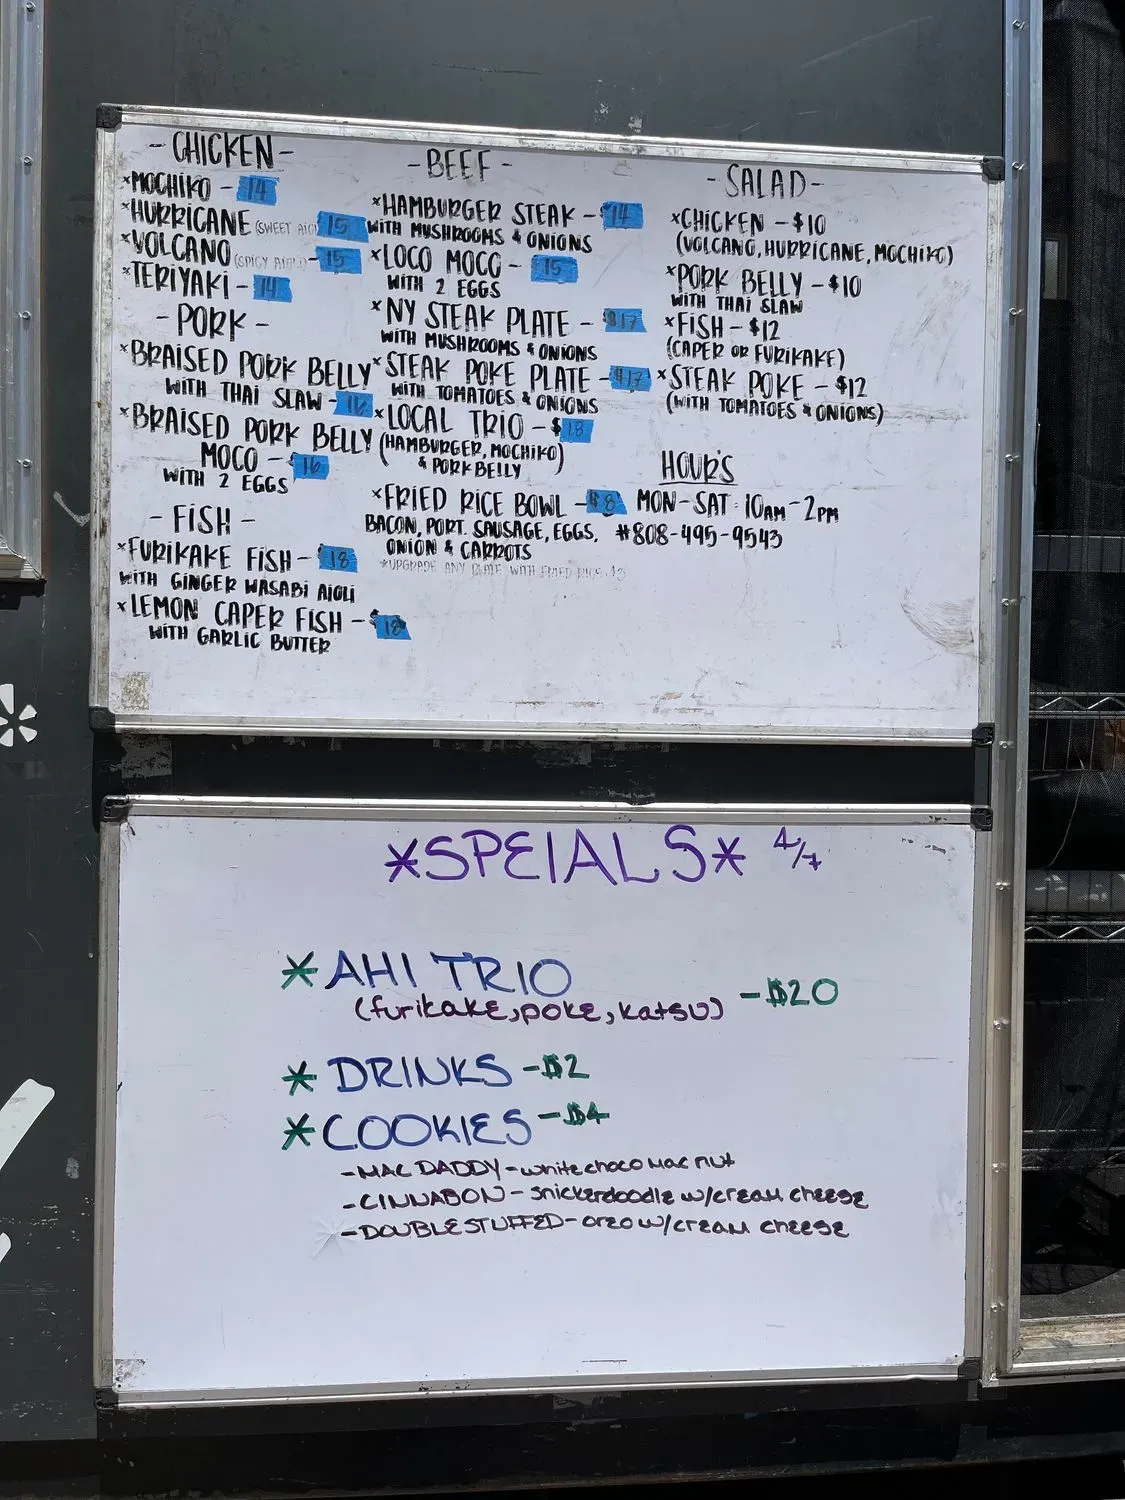 - CHICKEN -
*MOCHIKO - 14
*HURRICANE (SWEET AIOLI) 15
*VOLCANO (SPICY AIOLI) - 15
*TERIYAKI - 14
- PORK -
*BRAISED PORK BELLY
WITH THAI SLAW - 16
*BRAISED PORK BELLY
MOCO - $16
WITH 2 EGGS
- FISH -
*FURIKAKE FISH - $18
WITH GINGER WASABI AIOLI
*LEMON CAPER FISH - $18
WITH GARLIC BUTTER
- BEEF -
*HAMBURGER STEAK - $14
WITH MUSHROOMS & ONIONS
*LOCO MOCO - 15
WITH 2 EGGS
*NY STEAK PLATE - $17
WITH MUSHROOMS & ONIONS
*STEAK POKE PLATE - $17
WITH TOMATOES & ONIONS
*LOCAL TRIO - $18
(HAMBURGER, MOCHIKO)
& PORK BELLY
*FRIED RICE BOWL - $8
BACON, PORT. SAUSAGE, EGGS,
ONION & CARROTS
*UPGRADE ANY PLATE WITH FRIED RICE
- SALAD -
*CHICKEN - $10
(VOLCANO, HURRICANE, MOCHIKO)
*PORK BELLY - $10
WITH THAI SLAW
*FISH - $12
(CAPER OR FURIKAKE)
*STEAK POKE - $12
(WITH TOMATOES & ONIONS)
HOURS
MON-SAT: 10AM-2PM
#808-495-9543
*SPEIALS* 4/7
*AHI TRIO
(furikake, poke, katsu) - $20
*DRINKS - $2
*COOKIES - $4
- MAC DADDY - white choco mac nut
- CINNABON - snickerdoodle w/cream cheese
- DOUBLE STUFFED - oreo w/cream cheese